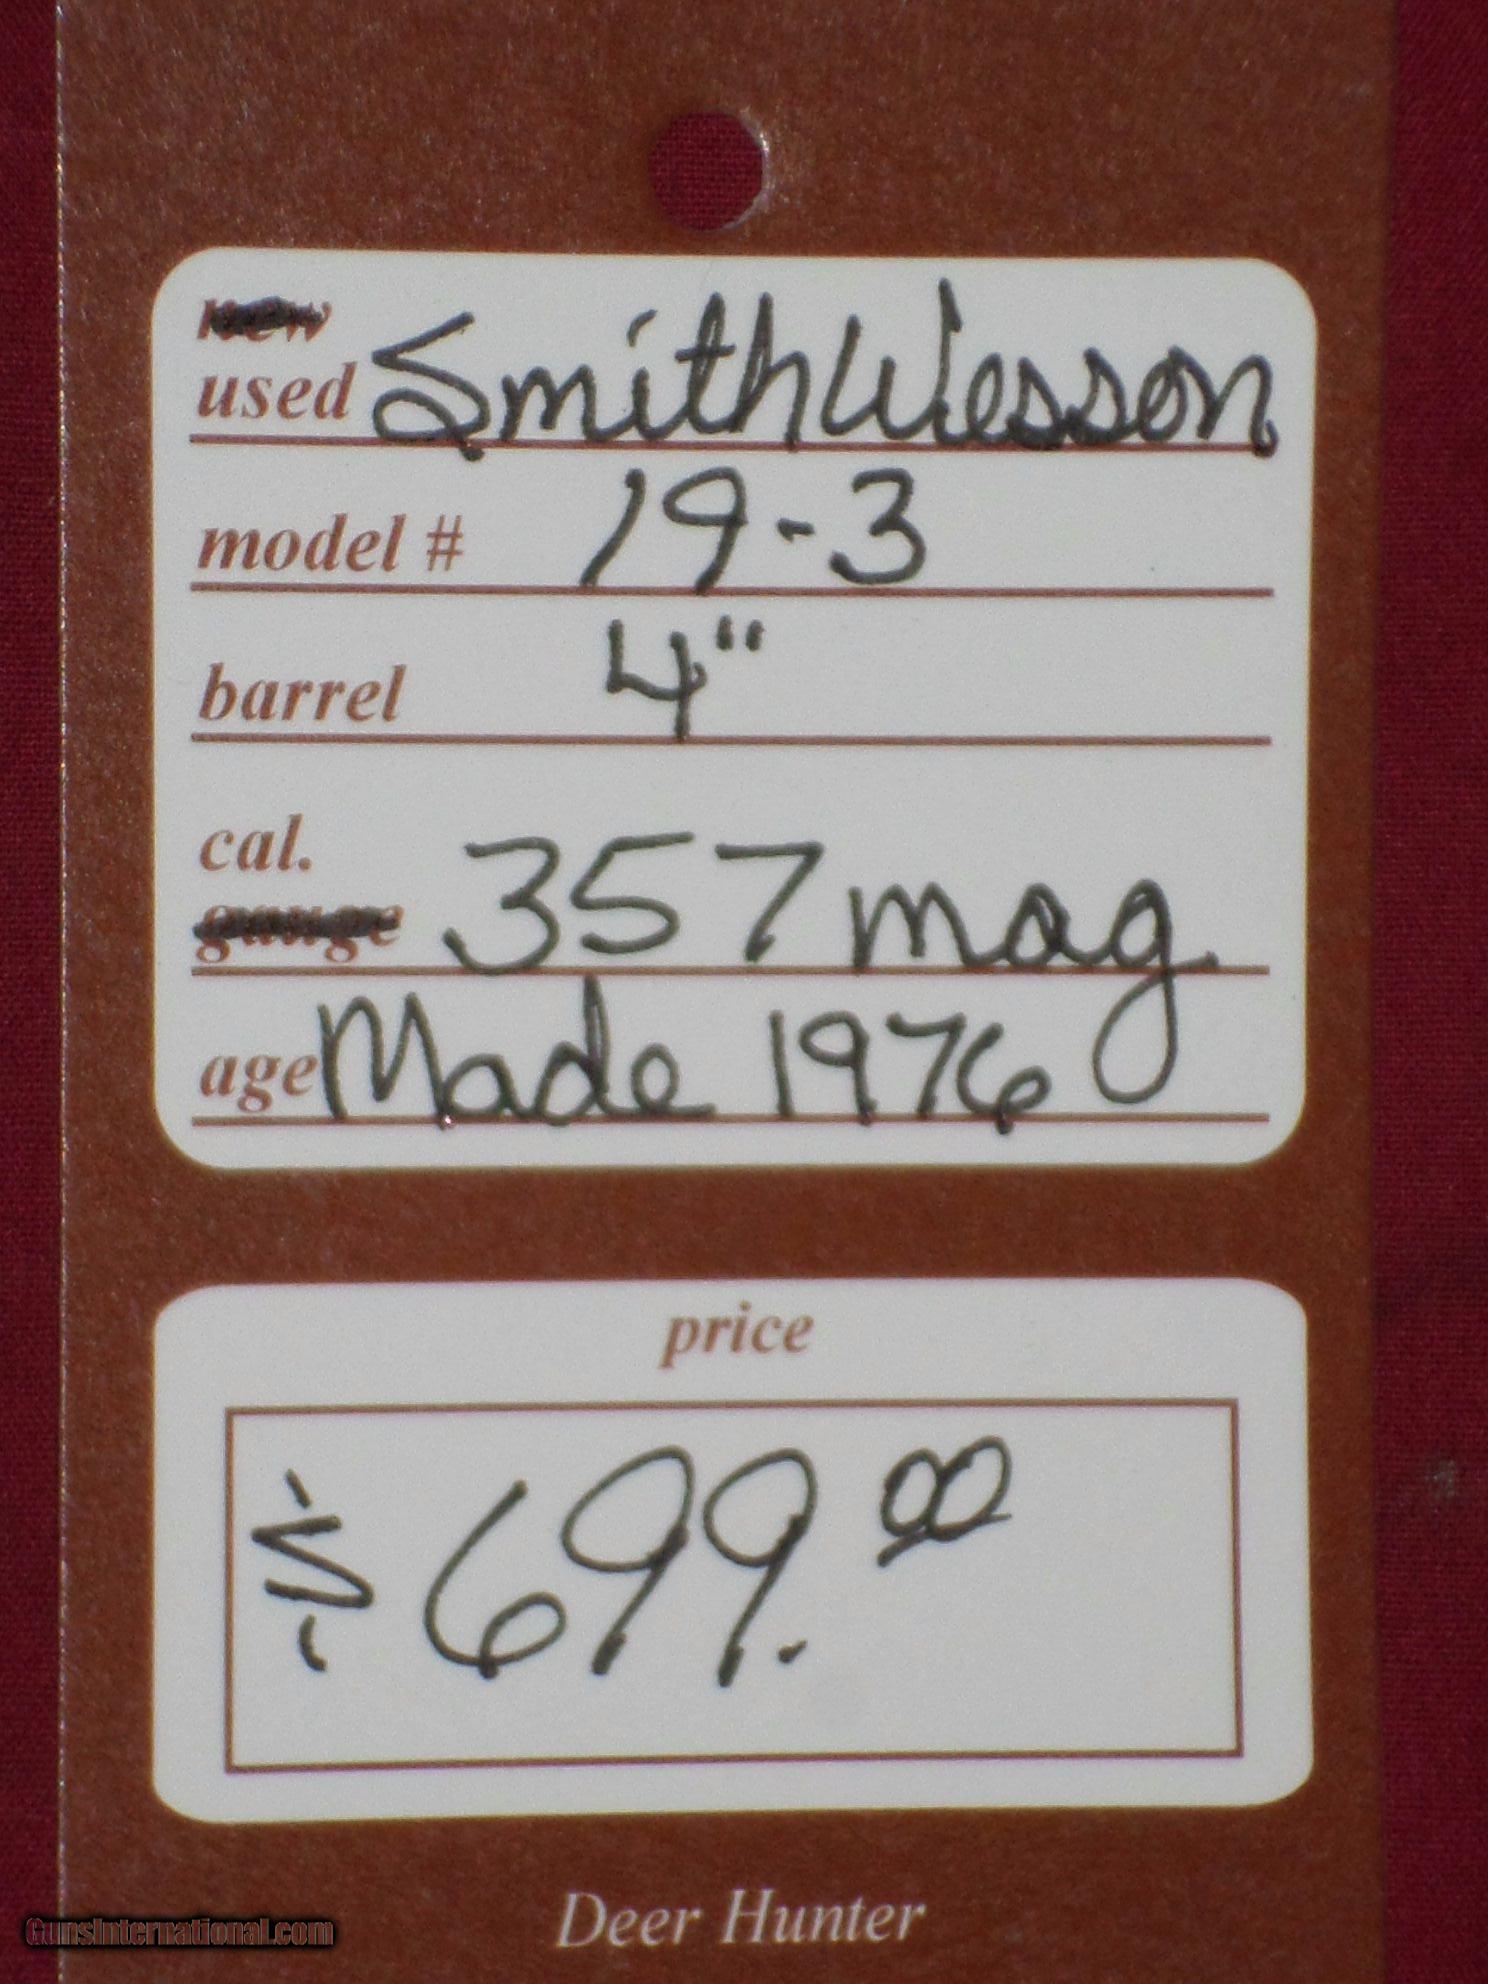 new
used Smith Wesson
model # 19-3
barrel 4"
cal.
gauge 357 mag.
age Made 1976
price
$699.00
Deer Hunter
GunsInternational.com